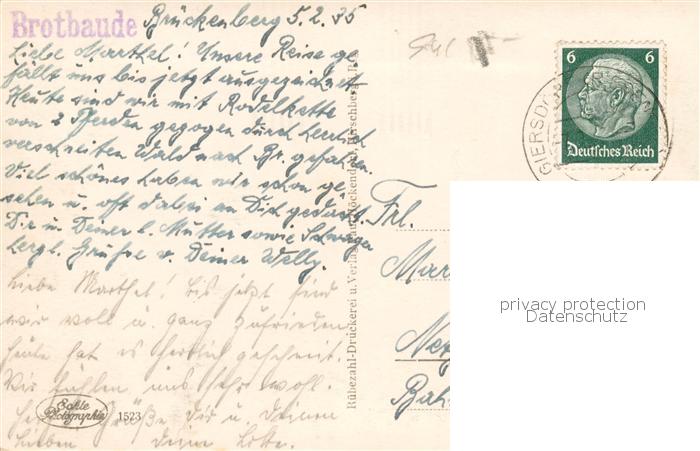 Brotbaude
Brückenberg 5.2.35
Liebe Marthel! Unsere Reise ge-
fällt uns bis jetzt ausgezeichnet
Heute sind wir mit Rodelkette
von 2 Pferden gezogen durch herrlich
verschneiten Wald nach Br. gefahren.
Viel schönes haben wir schon ge-
sehen u. oft dabei an Dich gedacht.
Dir u. Deiner l. Mutter sowie Schwager
herzl. Grüße v. Deiner Welly.
Liebe Marthel! Bis jetzt sind
wir voll u. ganz zufrieden
heute hat es herrlich geschneit.
Wir fühlen uns sehr wohl.
Grüße Dich u. Deinen
Lieben Deine Lotte.
Echte
Photographie
1523
Rübezahl-Druckerei u. Verlag Hirschberg i. R.
6 6
Deutsches Reich
GIERSD
Frl.
Mar
Ba
privacy protection
Datenschutz